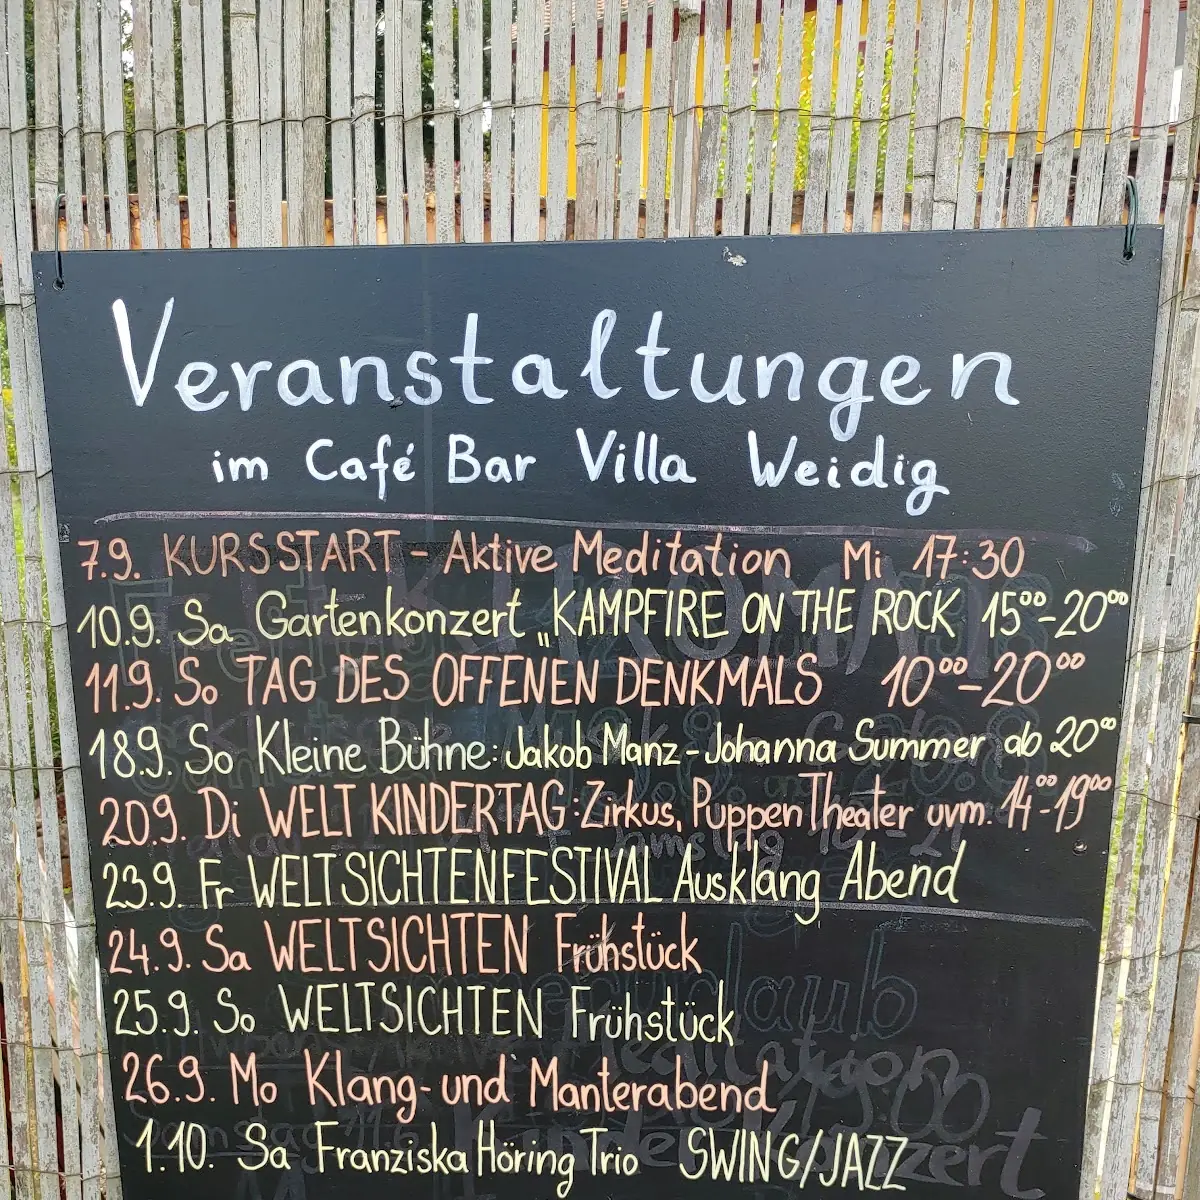 Veranstaltungen
im Café Bar Villa Weidig
7.9. KURSSTART - Aktive Meditation Mi 17:30
10.9. Sa Gartenkonzert „KAMPFIRE ON THE ROCK 15⁰⁰-20⁰⁰
11.9. So TAG DES OFFENEN DENKMALS 10⁰⁰-20⁰⁰
18.9. So Kleine Bühne: Jakob Manz - Johanna Summer ab 20⁰⁰
20.9. Di WELT KINDERTAG: Zirkus, PuppenTheater uvm. 14⁰⁰-19⁰⁰
23.9. Fr WELTSICHTENFESTIVAL Ausklang Abend
24.9. Sa WELTSICHTEN Frühstück
25.9. So WELTSICHTEN Frühstück
26.9. Mo Klang- und Manterabend
1.10. Sa Franziska Höring Trio SWING/JAZZ